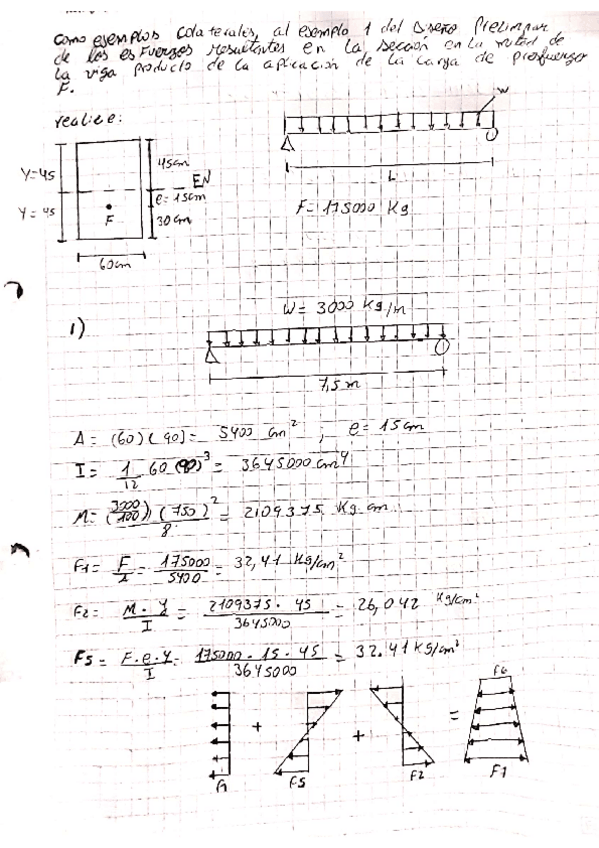 Como ejemplos Colaterales, al ejemplo 1 del Diseño Preliminar
de los esfuerzos resultantes en la sección en la mitad de
la viga producto de la aplicación de la carga de presfuerzo
F.
realice:
W
45cm
Y=45
EN
e=15cm
Y=45
F
30cm
60cm
L
F=175000 Kg
W= 3000 Kg/m
1)
7,5m
A= (60)(90)= 5400 cm² ; e= 15cm
I= 1/12 60 (90)³= 3645000 cm⁴
M= (3000/100)(750)²/8 = 2109375 Kg cm
F1= F/A = 175000/5400 = 32,41 Kg/cm²
F2= M·y/I = 2109375·45/3645000 = 26,042 Kg/cm²
F5= F·e·y/I = 175000·15·45/3645000 = 32.41 Kg/cm²
F6
+ + =
F1 F5 F2 F7